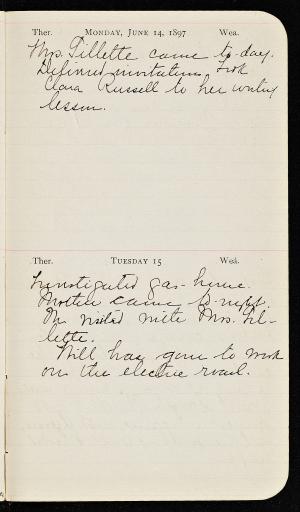 Ther. MONDAY, JUNE 14, 1897 Wea.
Mrs. Tillette came to-day.
invitations. Took
Clara Russell to her writing
lesson.
Ther. TUESDAY 15 Wea.
Investigated gas-
Mother came to-night.
visited with Mrs. Til-
lette.
Will has gone to work
on the electric road.